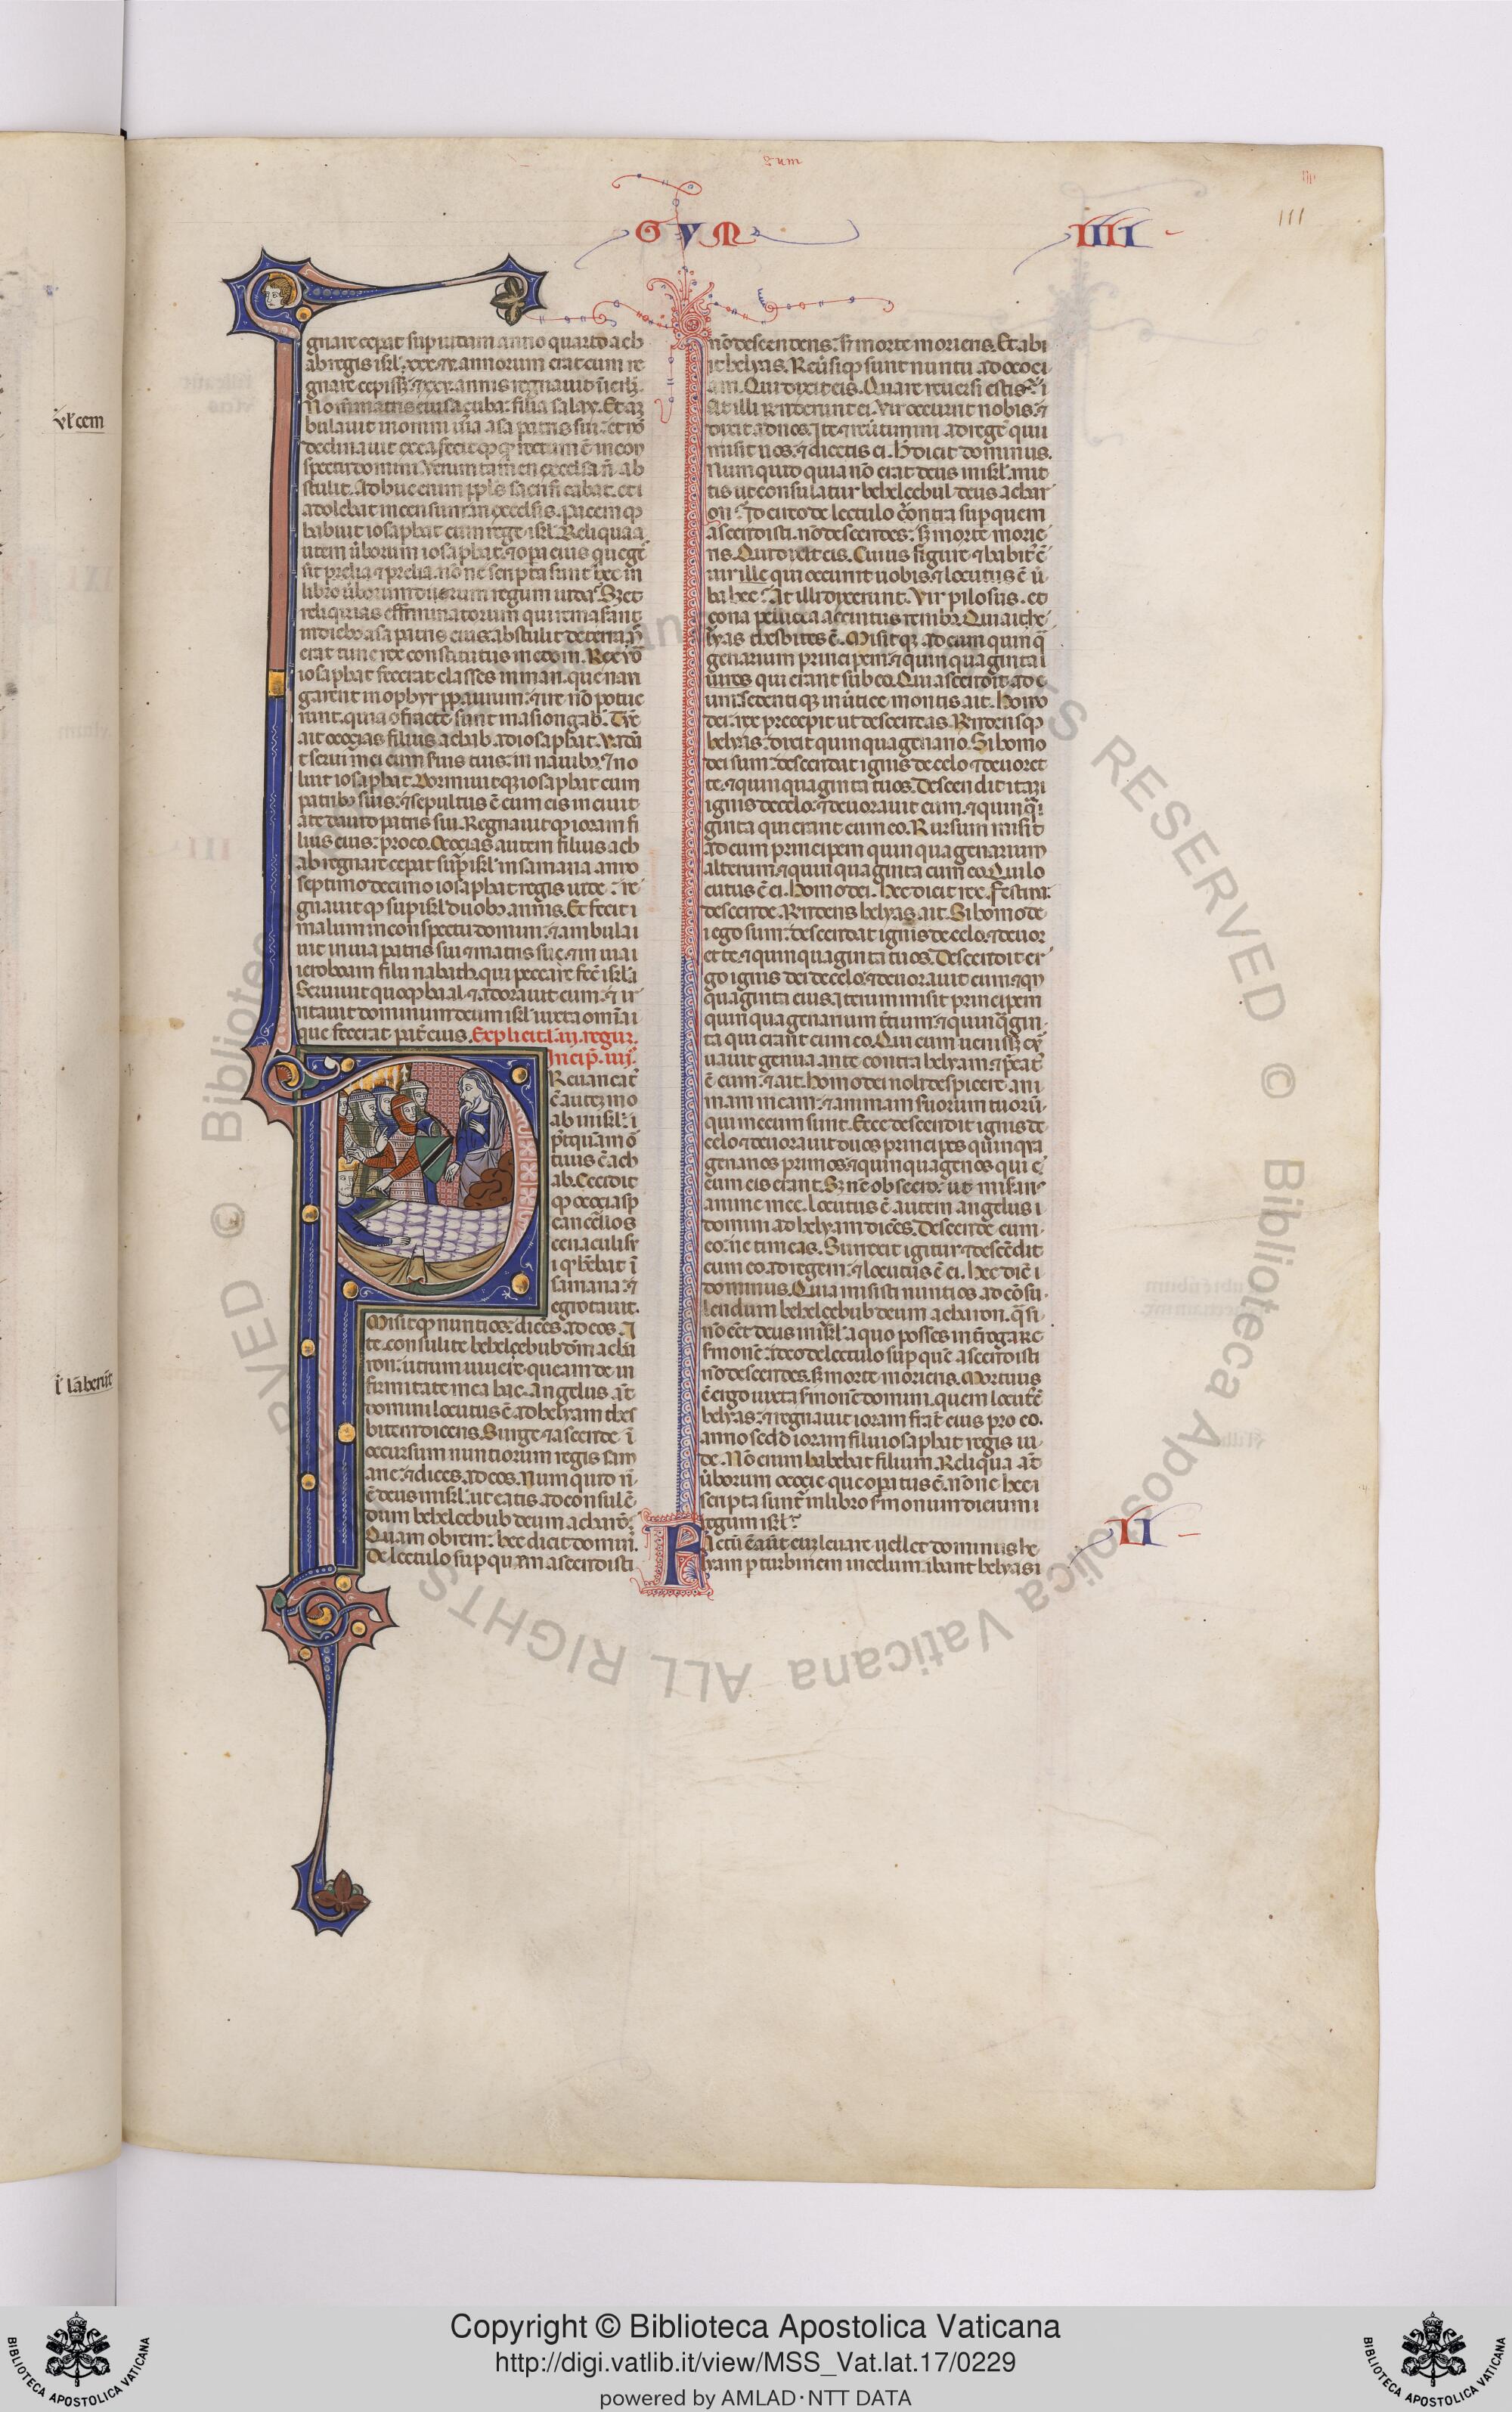 ꝟl cem
ł lāberūt
gum
GVM
IIII
111
gnare ceperat sup iudam anno quarto ach
ab regis isrl. xxx. v. annorum erat cum re
gnare cepisset. ⁊ xxv. annis regnauit ī ierlm.
Nomen matris eius açuba: filia salay. Et am
bulauit in omni uia asa patris sui: et nō
declinauit ex ea. fecitqꝫ qđ rectum ē in con
spectu domini. Verumtamen excelsa nō ab
stulit. Adhuc enim ppls sacrificabat. et i
adolebat incensum in excelsis. Pacemqꝫ
habuit iosaphat cum rege isrl. Reliqua a
utem ủborum iosaphat. ⁊ opa eius que ges
sit prelia ⁊ prelia. nōne scripta sunt hec in
libro ủborum dierum regum iuda? Sꝫ et
reliquias effeminatorum qui remāsant
in diebꝰ asa patris eius: abstulit de terra. Nō
erat tunc rex constitutus in edom. Rex uō
iosaphat fecerat classes in mari. que naui
garent in ophyr ꝓp aurum: ⁊ ire nō potue
runt. quia ꝯfracte sunt in asiongab. Tūc
ait ococias filius achab ad iosaphat. Vadāt
serui mei cum suis tuis: in nauibꝰ. ⁊ no
luit iosaphat. Dormiuitqꝫ iosaphat cum
patribꝰ suis: ⁊ sepultus ē cum eis in ciuit
ate dauid patris sui. Regnauitqꝫ ioram fi
lius eius: pro eo. Ococias autem filius ach
ab regnare cepat sup isrl in samaria anno
septimo decimo iosaphat regis iude: re
gnauitqꝫ sup isrl duobꝰ annis. Et fecit i
malum in conspectu domini: ⁊ ambula i
uit in uia patris sui ⁊ matris sue. ⁊ in uia i
ieroboam filii nabath. qui peccare fec̄ isrl. i
Seruiuit quoqꝫ baal ⁊ adorauit eum: ⁊ ir
ritauit dominum deum isrl iuxta omīa i
que fecerat pat̄ eius. Explicit l. iii. regum.
Incip̄. iiii.
Reuaricat̄
ē autem mo
ab in isrl: i
p̄tquam mō
tuus ē ach
ab. Cecidit
qꝫ ococias p
cancellos
cenaculi su
i qđ hēbat ī
samaria: ⁊
egrotauit.
Misitqꝫ nuntios: dicēs ad eos. I
te. consulite belçebub dm̄ acha
ron: utrum uiuere queam de in
firmitate mea hac. Angelus aūt
domini locutus ē ad helyam thes
biten dicens. Surge ⁊ ascende ī
occursum nuntiorum regis sam
arie: ⁊ dices ad eos. Numquid nō
ē deus in isrl: ut eatis ad consulē
dum belçebub deum acharō?
Quam obrem: hec dicit domin̄.
De lectulo sup quem ascendisti
nō descendens: sꝫ morte moriens. Et abi
it helyas. Reủsiqꝫ sunt nuntii ad ococi
am. Qui dixit eis. Quare reuersi estis? i
At illi rn̄derunt ei. Vir occurrit nobis: ⁊
dixit ad nos. Ite ⁊ reủtimini ad regē qui
misit uos: ⁊ dicetis ei. H̄ dicit dominus.
Numquid quia nō erat deus in isrl: mit
tis ut consulatur belçebul deus achar
on? Idcirco de lectulo contra sup quem
ascendisti. nō descendes: sꝫ morte morie
ris. Qui dixit eis. Cuius figure ⁊ habit̄ ē
uir ille qui occurrit uobis. ⁊ locutus ē ủ
ba hec? At illi dixerunt. Vir pilosus. et
çona pellicea accintus renibꝰ. Qui ait he
lyas thesbites ē. Misitqꝫ ad eum quinq̄
genarium principem: ⁊ quinquaginta i
uiros qui erant sub eo. Qui ascendit ad e
um: sedentiqꝫ in ủtice montis ait. Homo
dei: rex precepit ut descendas. Rn̄densqꝫ
helyas: dixit quinquagenario. Si homo
dei sum: descendat ignis de celo: ⁊ deuoret
te. ⁊ quinquaginta tuos. Descendit itaqꝫ
ignis de celo: ⁊ deuorauit eum. ⁊ quinqua
ginta qui erant cum eo. Rursum misit
ad eum principem quinquagenarium
alterum: ⁊ quinquaginta cum eo. Qui lo
cutus ē ei. Homo dei. Hec dicit rex. Festina:
descende. Rn̄dens helyas ait. Si homo de
i ego sum: descendat ignis de celo. ⁊ deuor
et te. ⁊ quinquaginta tuos. Descendit er
go ignis dei de celo: ⁊ deuorauit eum ⁊ qn
quaginta eius. Iterum misit principem
quinquagenarium t̄cium: ⁊ quinq̄gin
ta qui erant cum eo. Qui cum uenisset. cur
uauit genua ante contra helyam: ⁊ p̄cat̄
ē eum: ⁊ ait. Homo dei noli despicere ani
mam meam: ⁊ animam suorum tuorū.
qui mecum sunt. Ecce descendit ignis de
celo: ⁊ deuorauit duos principes quinqua
genarios primos: ⁊ quinquagenos qui ī
cum eis erant. Sꝫ nc̄ obsecro: ut mis̄earis
anime mee. Locutus ē autem angelus i
domini ad helyam dicēs. Descende cum
eo: ne timeas. Surrexit igitur ⁊ descēdit
cum eo ad regem: ⁊ locutus ē ei. Hec dic̄ i
dominus. Quia misisti nuntios ad cōsu
lendum belçebub deum acharon. q̄si
nō eēt deus in isrl a quo posses int̄rogare
s̄monē: ideo de lectulo sup quē ascendisti
nō descendes: sꝫ morte morieris. Mortuus
ē ergo iuxta s̄monē domini. quem locut̄ ē
helyas: ⁊ regnauit ioram frat̄ eius pro eo.
anno scd̄o ioram filii iosaphat regis iu
de. Nō enim habebat filium. Reliqua aūt
ủborum ococie que opatus ē: nōne hec i
scripta sunt in libro s̄monum dierum i
regum isrl?
II
Factū ē aūt cum leuare uellet dominus he
lyam p turbinem in celum: ibant helyas i
Copyright © Biblioteca Apostolica Vaticana
http://digi.vatlib.it/view/MSS_Vat.lat.17/0229
powered by AMLAD·NTT DATA
BIBLIOTECA APOSTOLICA VATICANA
BIBLIOTECA APOSTOLICA VATICANA
© Biblioteca Apostolica Vaticana ALL RIGHTS RESERVED